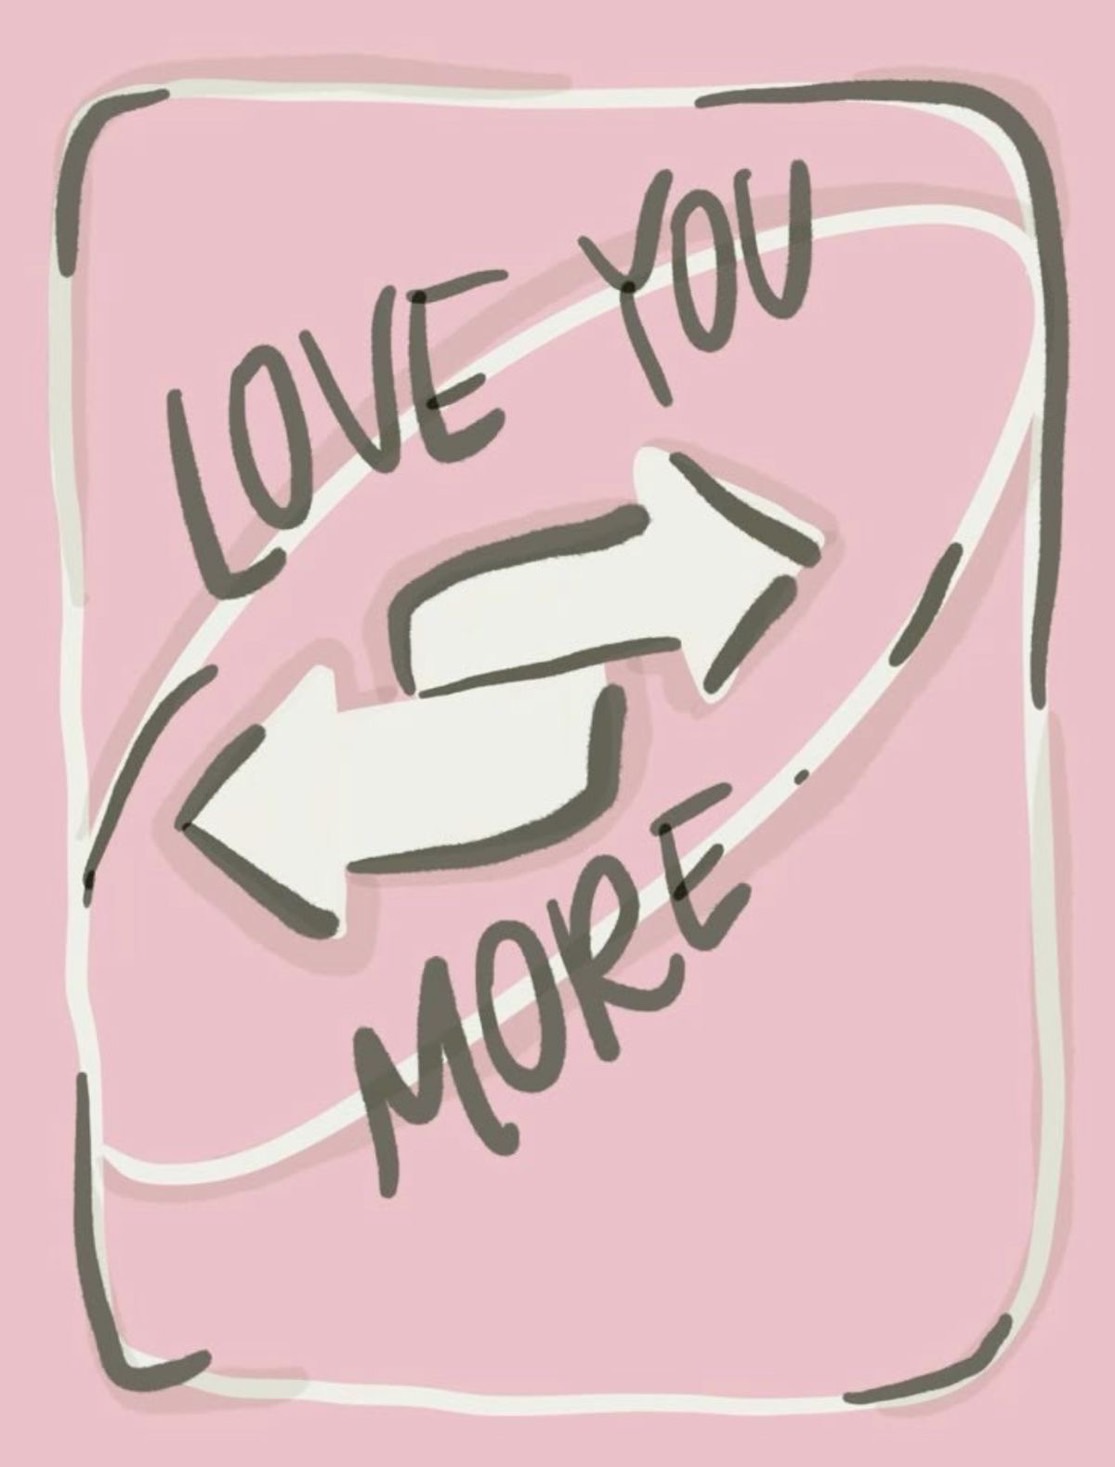 LOVE YOU
MORE